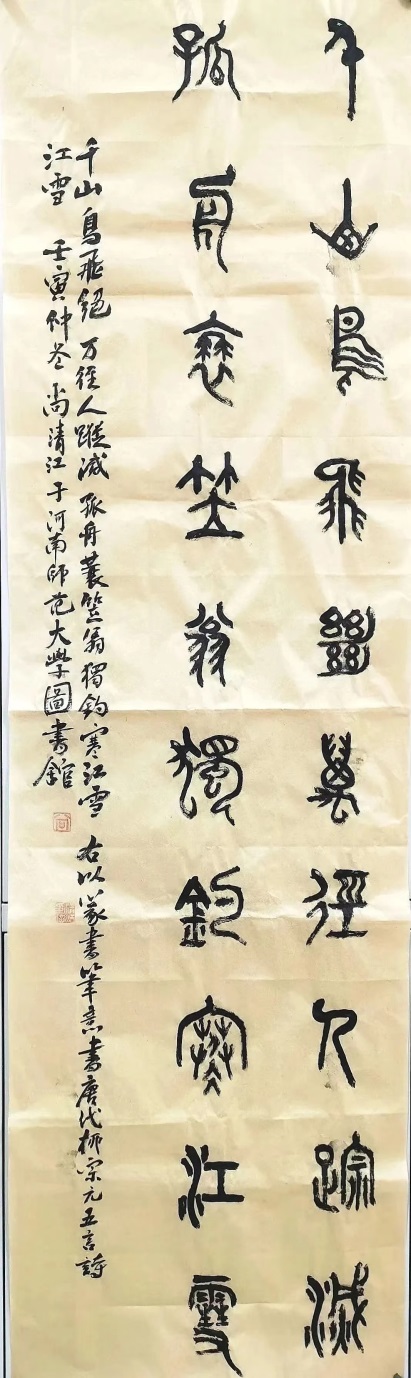 千山鳥飛絕萬徑人蹤滅
孤舟蓑笠翁獨釣寒江雪
千山鳥飛絕 万徑人蹤滅 孤舟蓑笠翁 獨釣寒江雪 右以篆書筆意書唐代柳宗元五言詩
江雪 壬寅仲冬 尚清江于河南師范大學圖書館